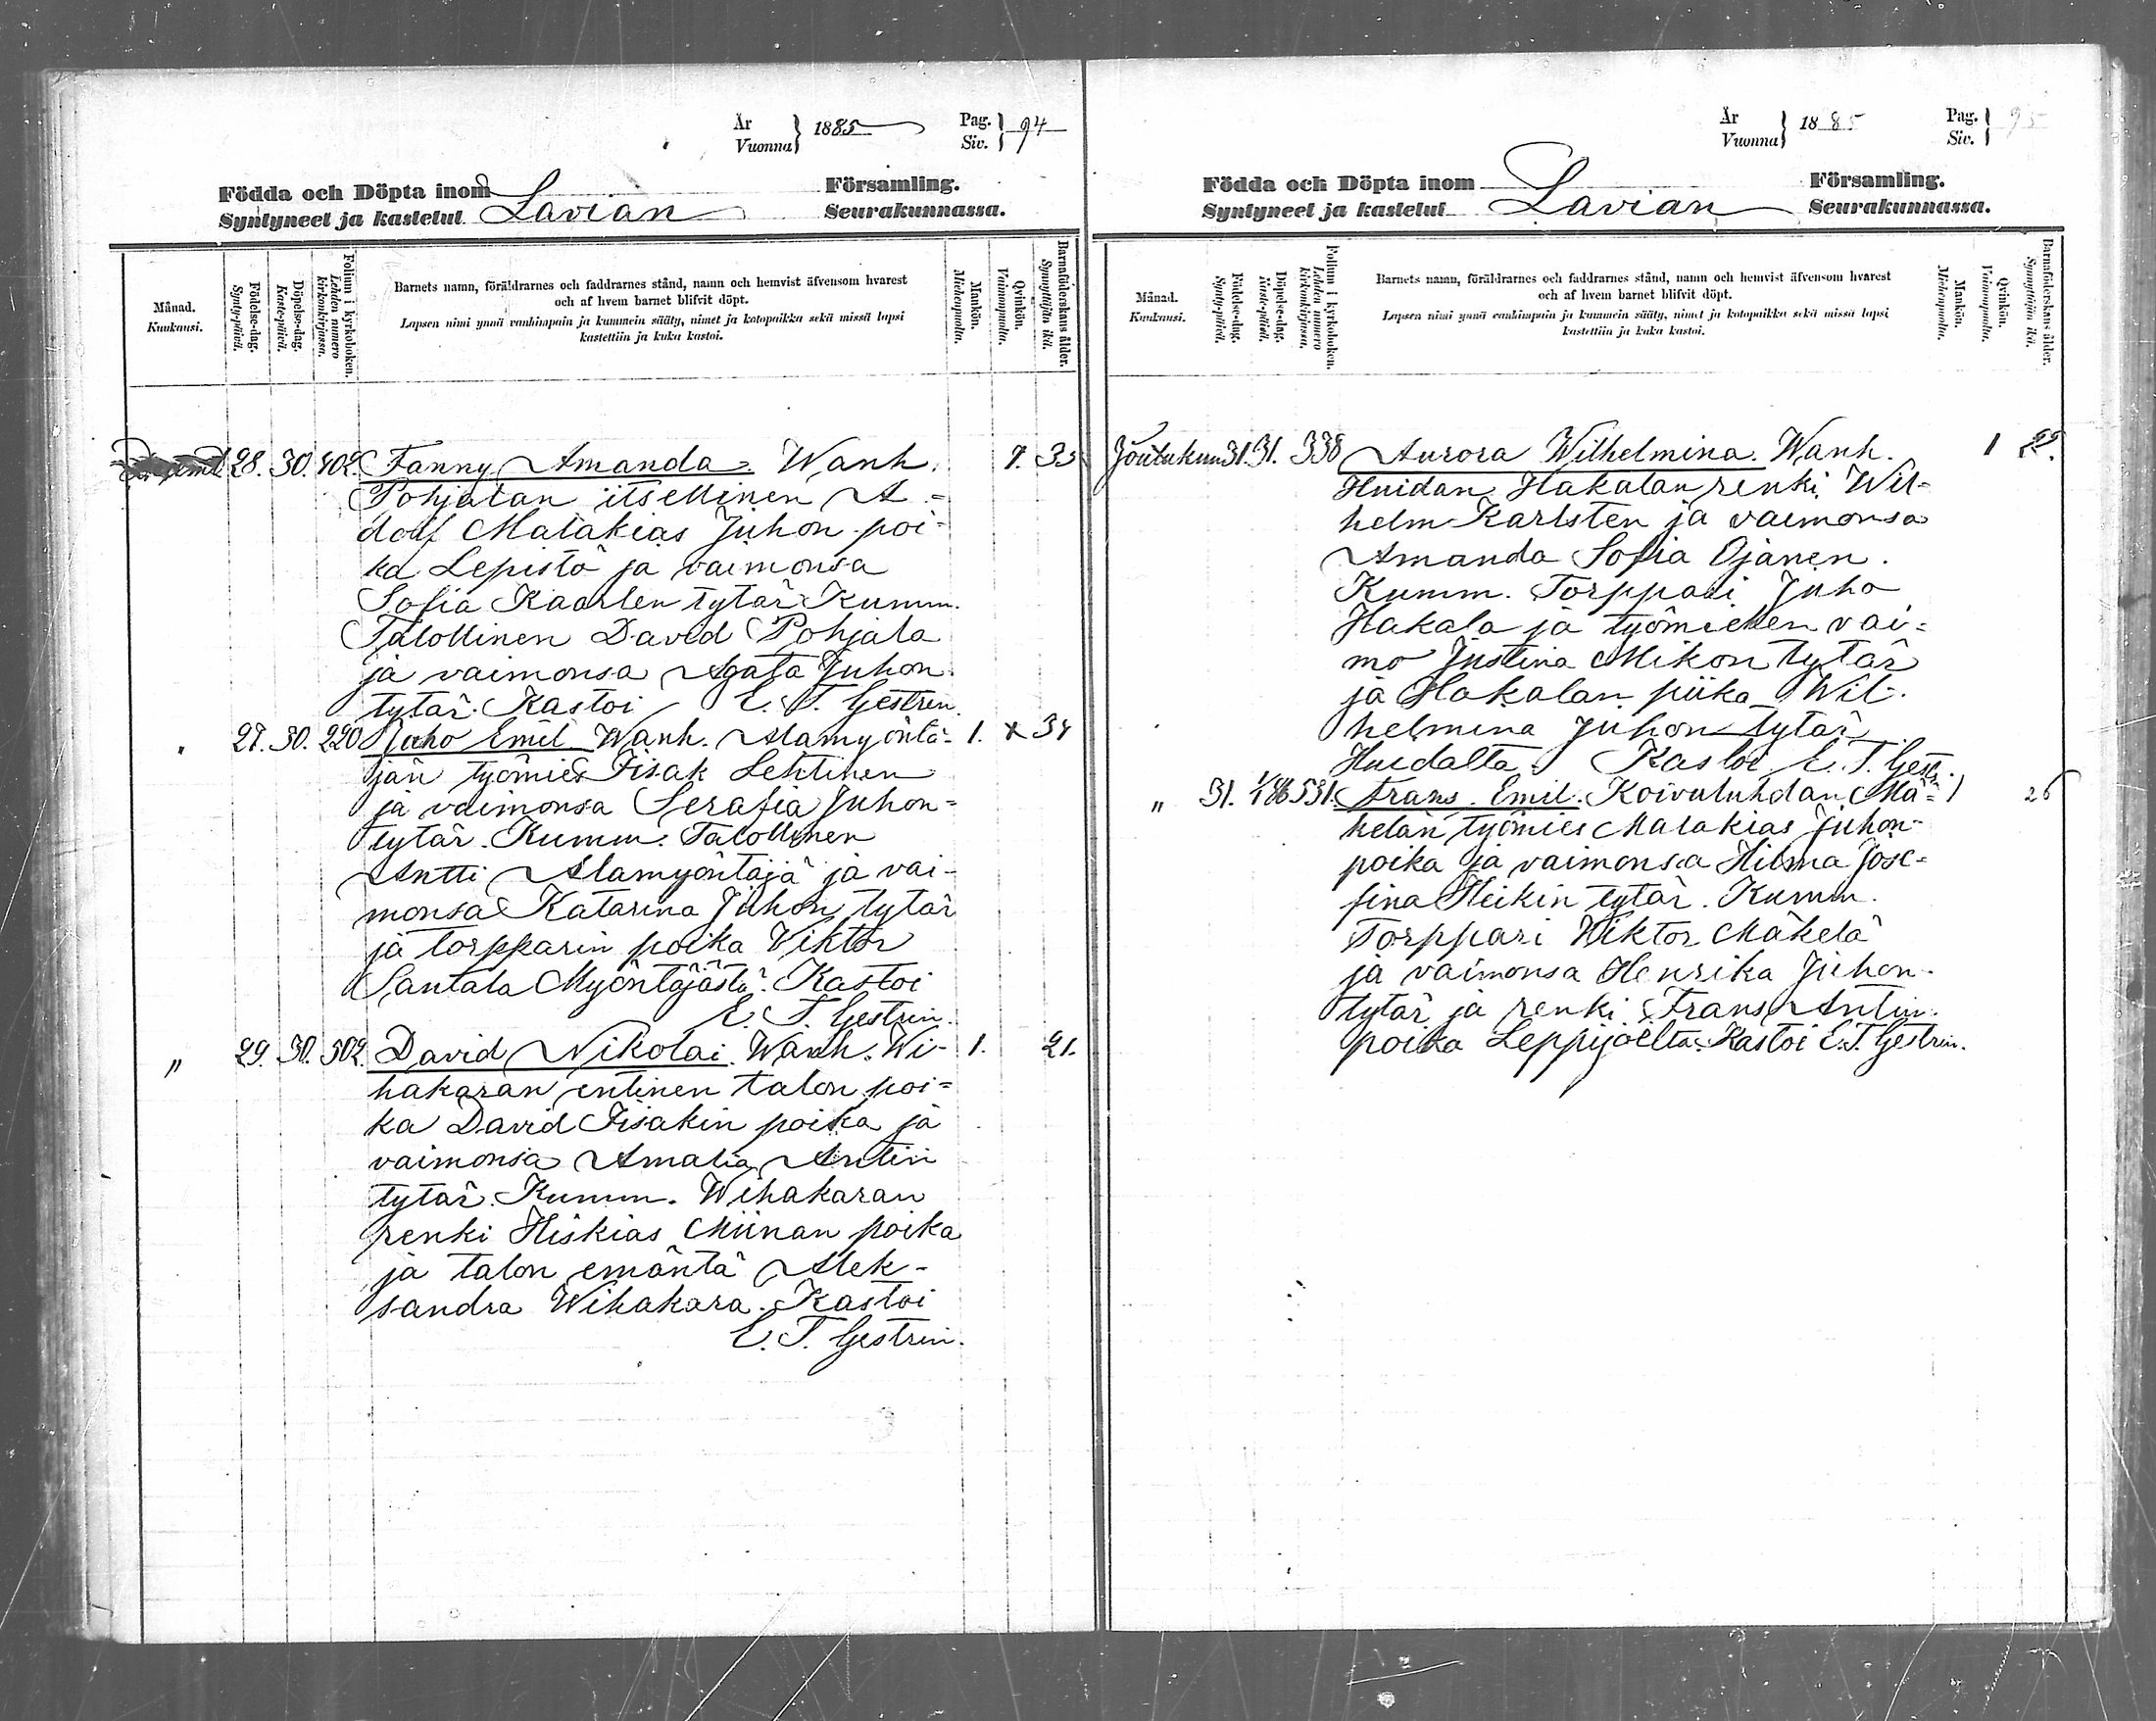 År
Vuonna } 1885 Pag.
Siv. } 94
Födda och Döpta inom Lavian Församling.
Syntyneet ja kastetut Seurakunnassa.
Månad.
Kuukausi.
Födelse-dag.
Synty-päivä.
Döpelse-dag.
Kaste-päivä.
Folium i kyrkoboken.
Lehden numero kirkonkirjassa.
Barnets namn, föräldrarnes och faddrarnes stånd, namn och hemvist äfvensom hvarest
och af hvem barnet blifvit döpt.
Lapsen nimi ynnä vanhimpain ja kummein sääty, nimet ja kotopaikka sekä missä lapsi
kastettiin ja kuka kastoi.
Mankön.
Miehenpuolia.
Qvinkön.
Vaimonpuolia.
Barnaföderskans ålder.
Synnyttäjän ikä.
28. 30. 402. Fanny Amanda. Wanh. 1. 35
Pohjalan itsellinen A=
dolf Malakias Juhon poi=
ka Lepistö ja vaimonsa
Sofia Kaarlen tytär Kumm.
Talollinen David Pohjala
ja vaimonsa Agata Juhon
tytär. Kastoi E. T. Gestrin.
27. 30. 220 Juho Emil Wanh. Alamyöntä- 1. x 34
jän työmies Iisak Lehtinen
ja vaimonsa Serafia Juhon=
tytär. Kumm. Talollinen
Antti Alamyöntäjä ja vai-
monsa Katarina Juhon tytär
ja torpparin poika Viktor
Santala Myöntäjästä. Kastoi
E. T. Gestrin.
" 29. 30. 502. David Nikolai. Wanh. Wi- 1. 21.
hakaran entinen talon poi=
ka David Iisakin poika ja
vaimonsa Amalia Antin
tytär. Kumm. Wihakaran
renki Hiskias Miinan poika
ja talon emäntä Alek-
sandra Wihakara. Kastoi
E. T. Gestrin.
År
Vuonna } 1885 Pag.
Siv. } 95
Födda och Döpta inom Lavian Församling.
Syntyneet ja kastetut Seurakunnassa.
Månad.
Kuukausi.
Födelse-dag.
Synty-päivä.
Döpelse-dag.
Kaste-päivä.
Folium i kyrkoboken.
Lehden numero kirkonkirjassa.
Barnets namn, föräldrarnes och faddrarnes stånd, namn och hemvist äfvensom hvarest
och af hvem barnet blifvit döpt.
Lapsen nimi ynnä vanhimpain ja kummein sääty, nimet ja kotopaikka sekä missä lapsi
kastettiin ja kuka kastoi.
Mankön.
Miehenpuolia.
Qvinkön.
Vaimonpuolia.
Barnaföderskans ålder.
Synnyttäjän ikä.
Joulukuun 31. 31. 338 Aurora Wilhelmina. Wanh. 1 22.
Huidan Hakalan renki Wil=
helm Karlsten ja vaimonsa
Amanda Sofia Ojanen.
Kumm. Torppari Juho
Hakala ja työmiehen vai=
mo Justina Mikon tytär
ja Hakalan piika Wil-
helmina Juhon tytär
Huidalta. Kastoi E. T. Gestr.
" 31. 1/1 86 531. Frans Emil. Koivuluhdan Mä= 1 26
kelän työmies Malakias Juhon-
poika ja vaimonsa Hilma Jose=
fina Heikin tytär. Kumm.
Torppari Wiktor Mäkelä
ja vaimonsa Henrika Juhon-
tytär ja renki Frans Antin-
poika Leppijoelta. Kastoi E. T. Gestrin.